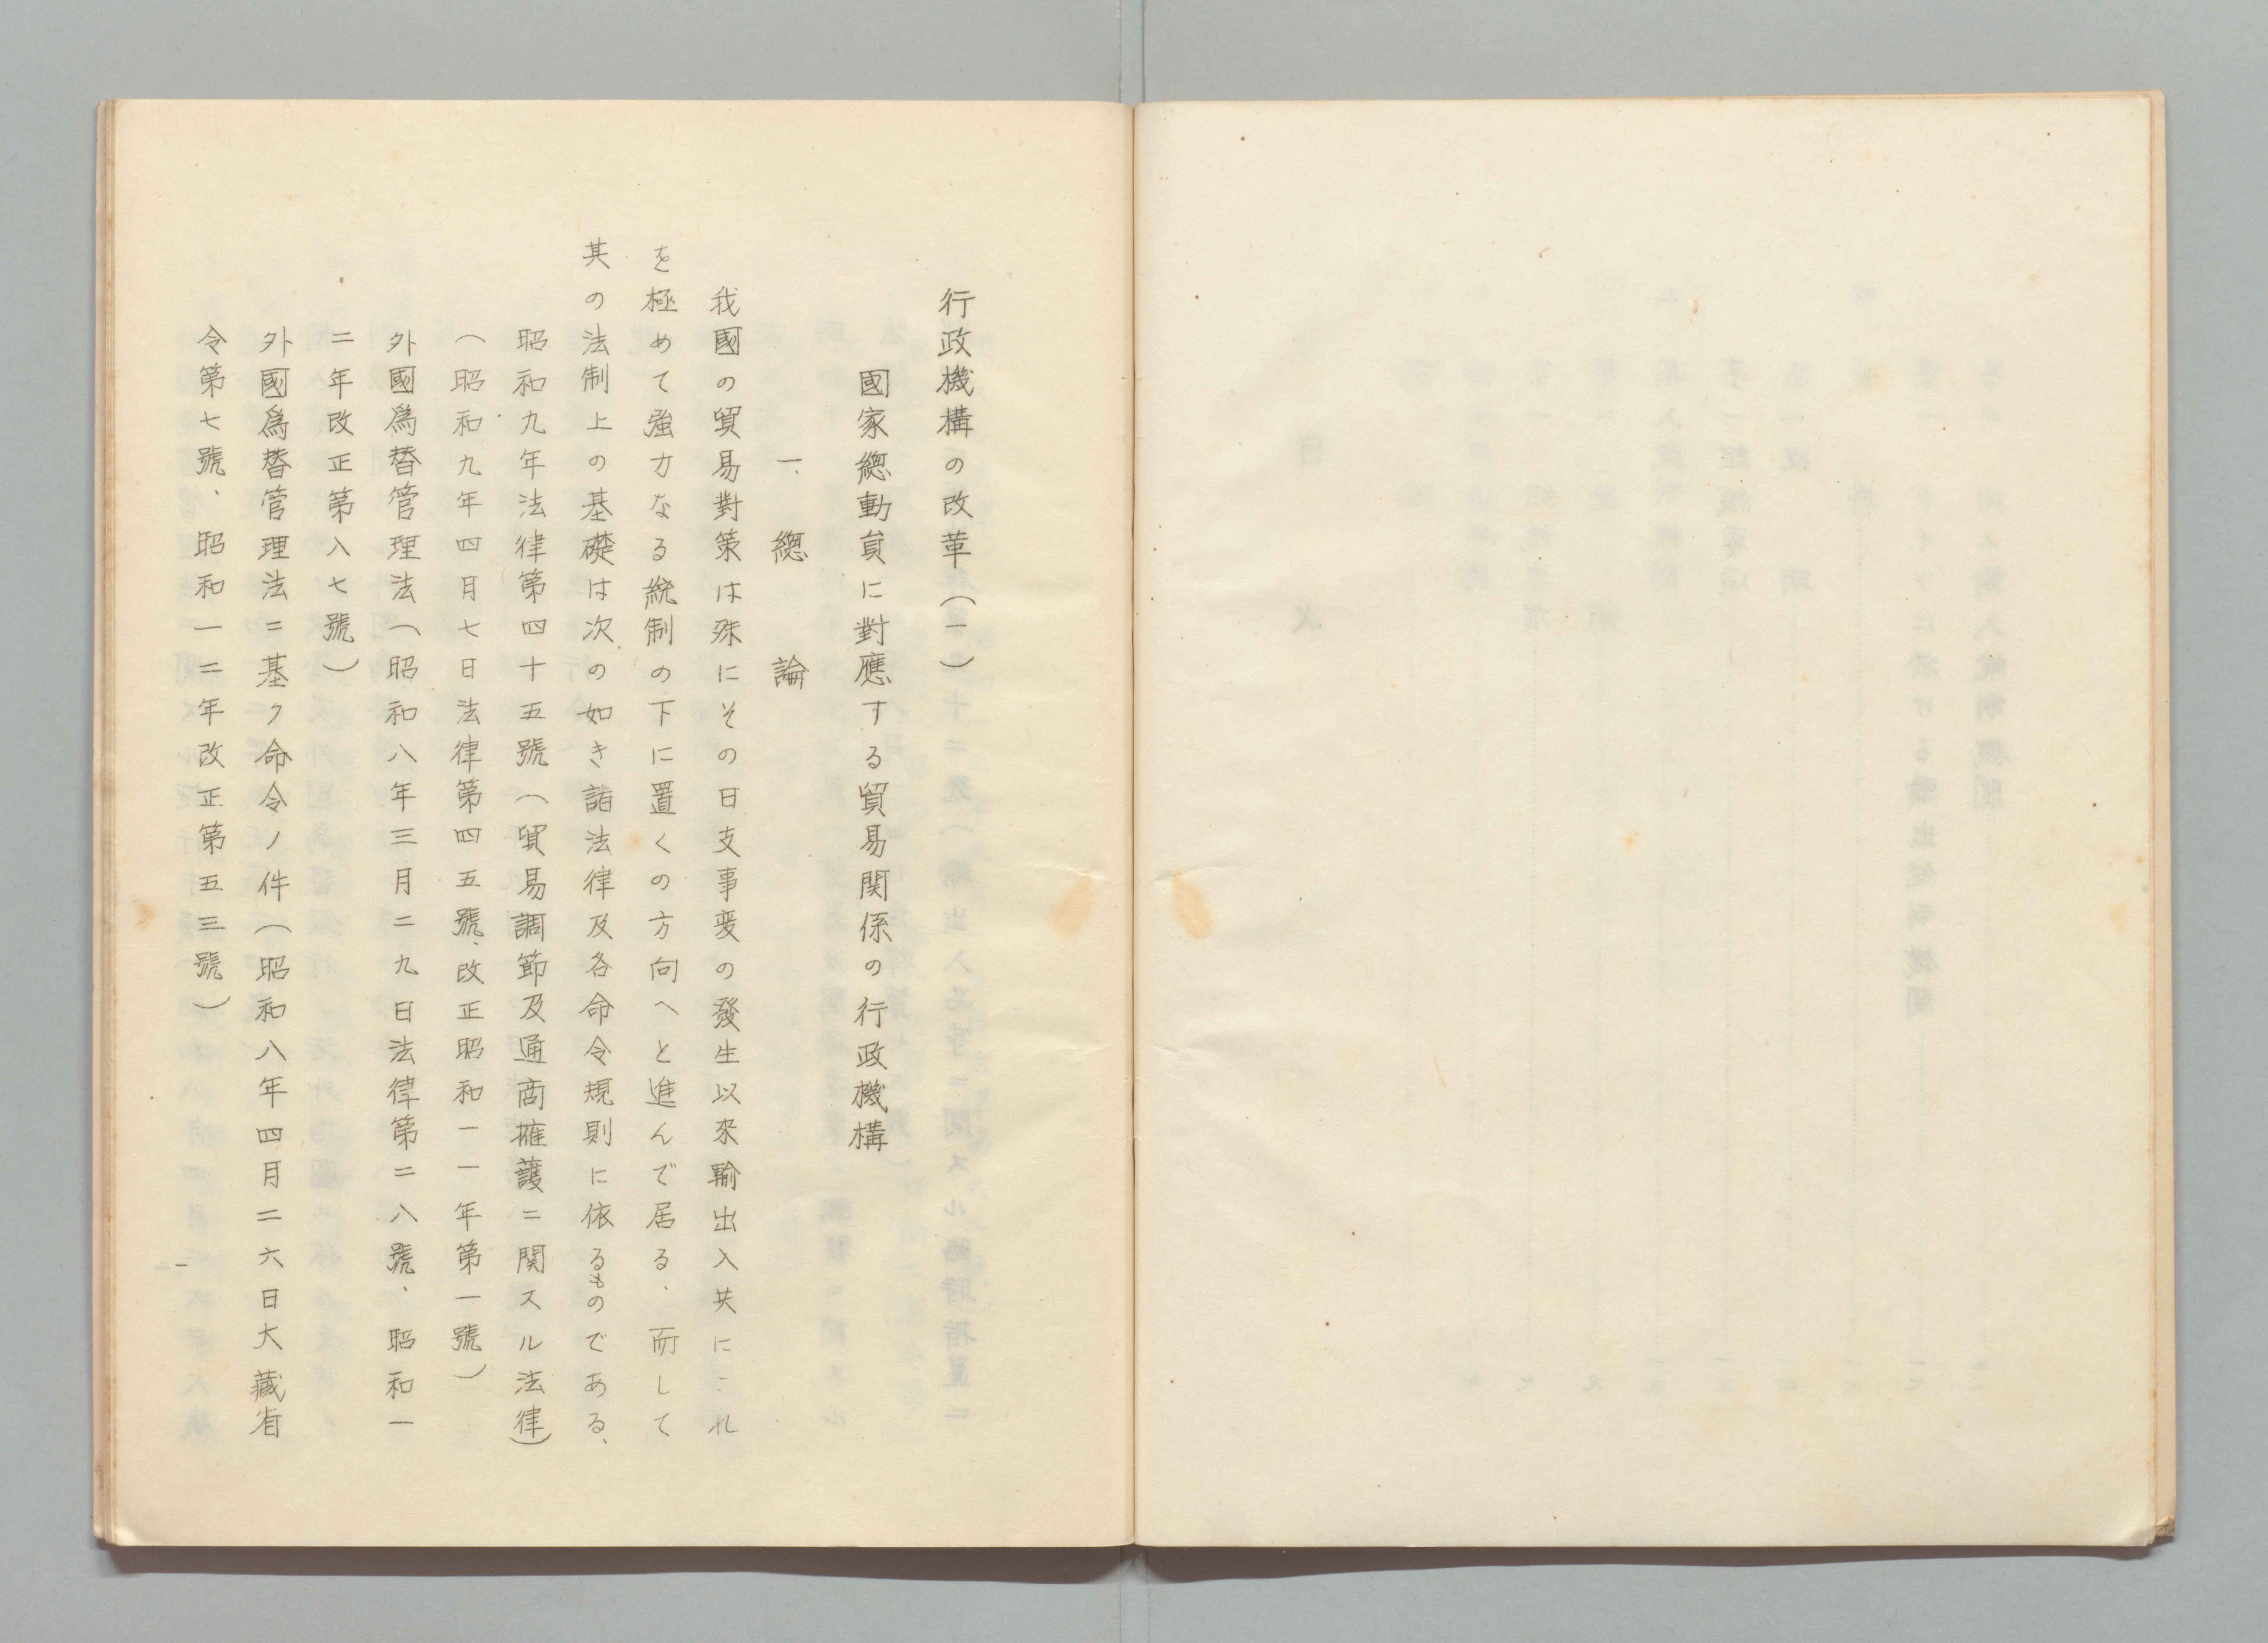 行政機構の改革（一）
國家總動員に對應する貿易関係の行政機構
一、總論
我國の貿易對策は殊にその日支事変の發生以來輸出入共にこれ
を極めて強力なる統制の下に置くの方向へと進んで居る、而して
其の法制上の基礎は次の如き諸法律及各命令規則に依るものである、
昭和九年法律第四十五號（貿易調節及通商擁護ニ関スル法律）
（昭和九年四月七日法律第四五號、改正昭和一一年第一號）
外國爲替管理法（昭和八年三月二九日法律第二八號、昭和一
二年改正第八七號）
外國爲替管理法ニ基ク命令ノ件（昭和八年四月二六日大藏省
令第七號、昭和一二年改正第五三號）
一